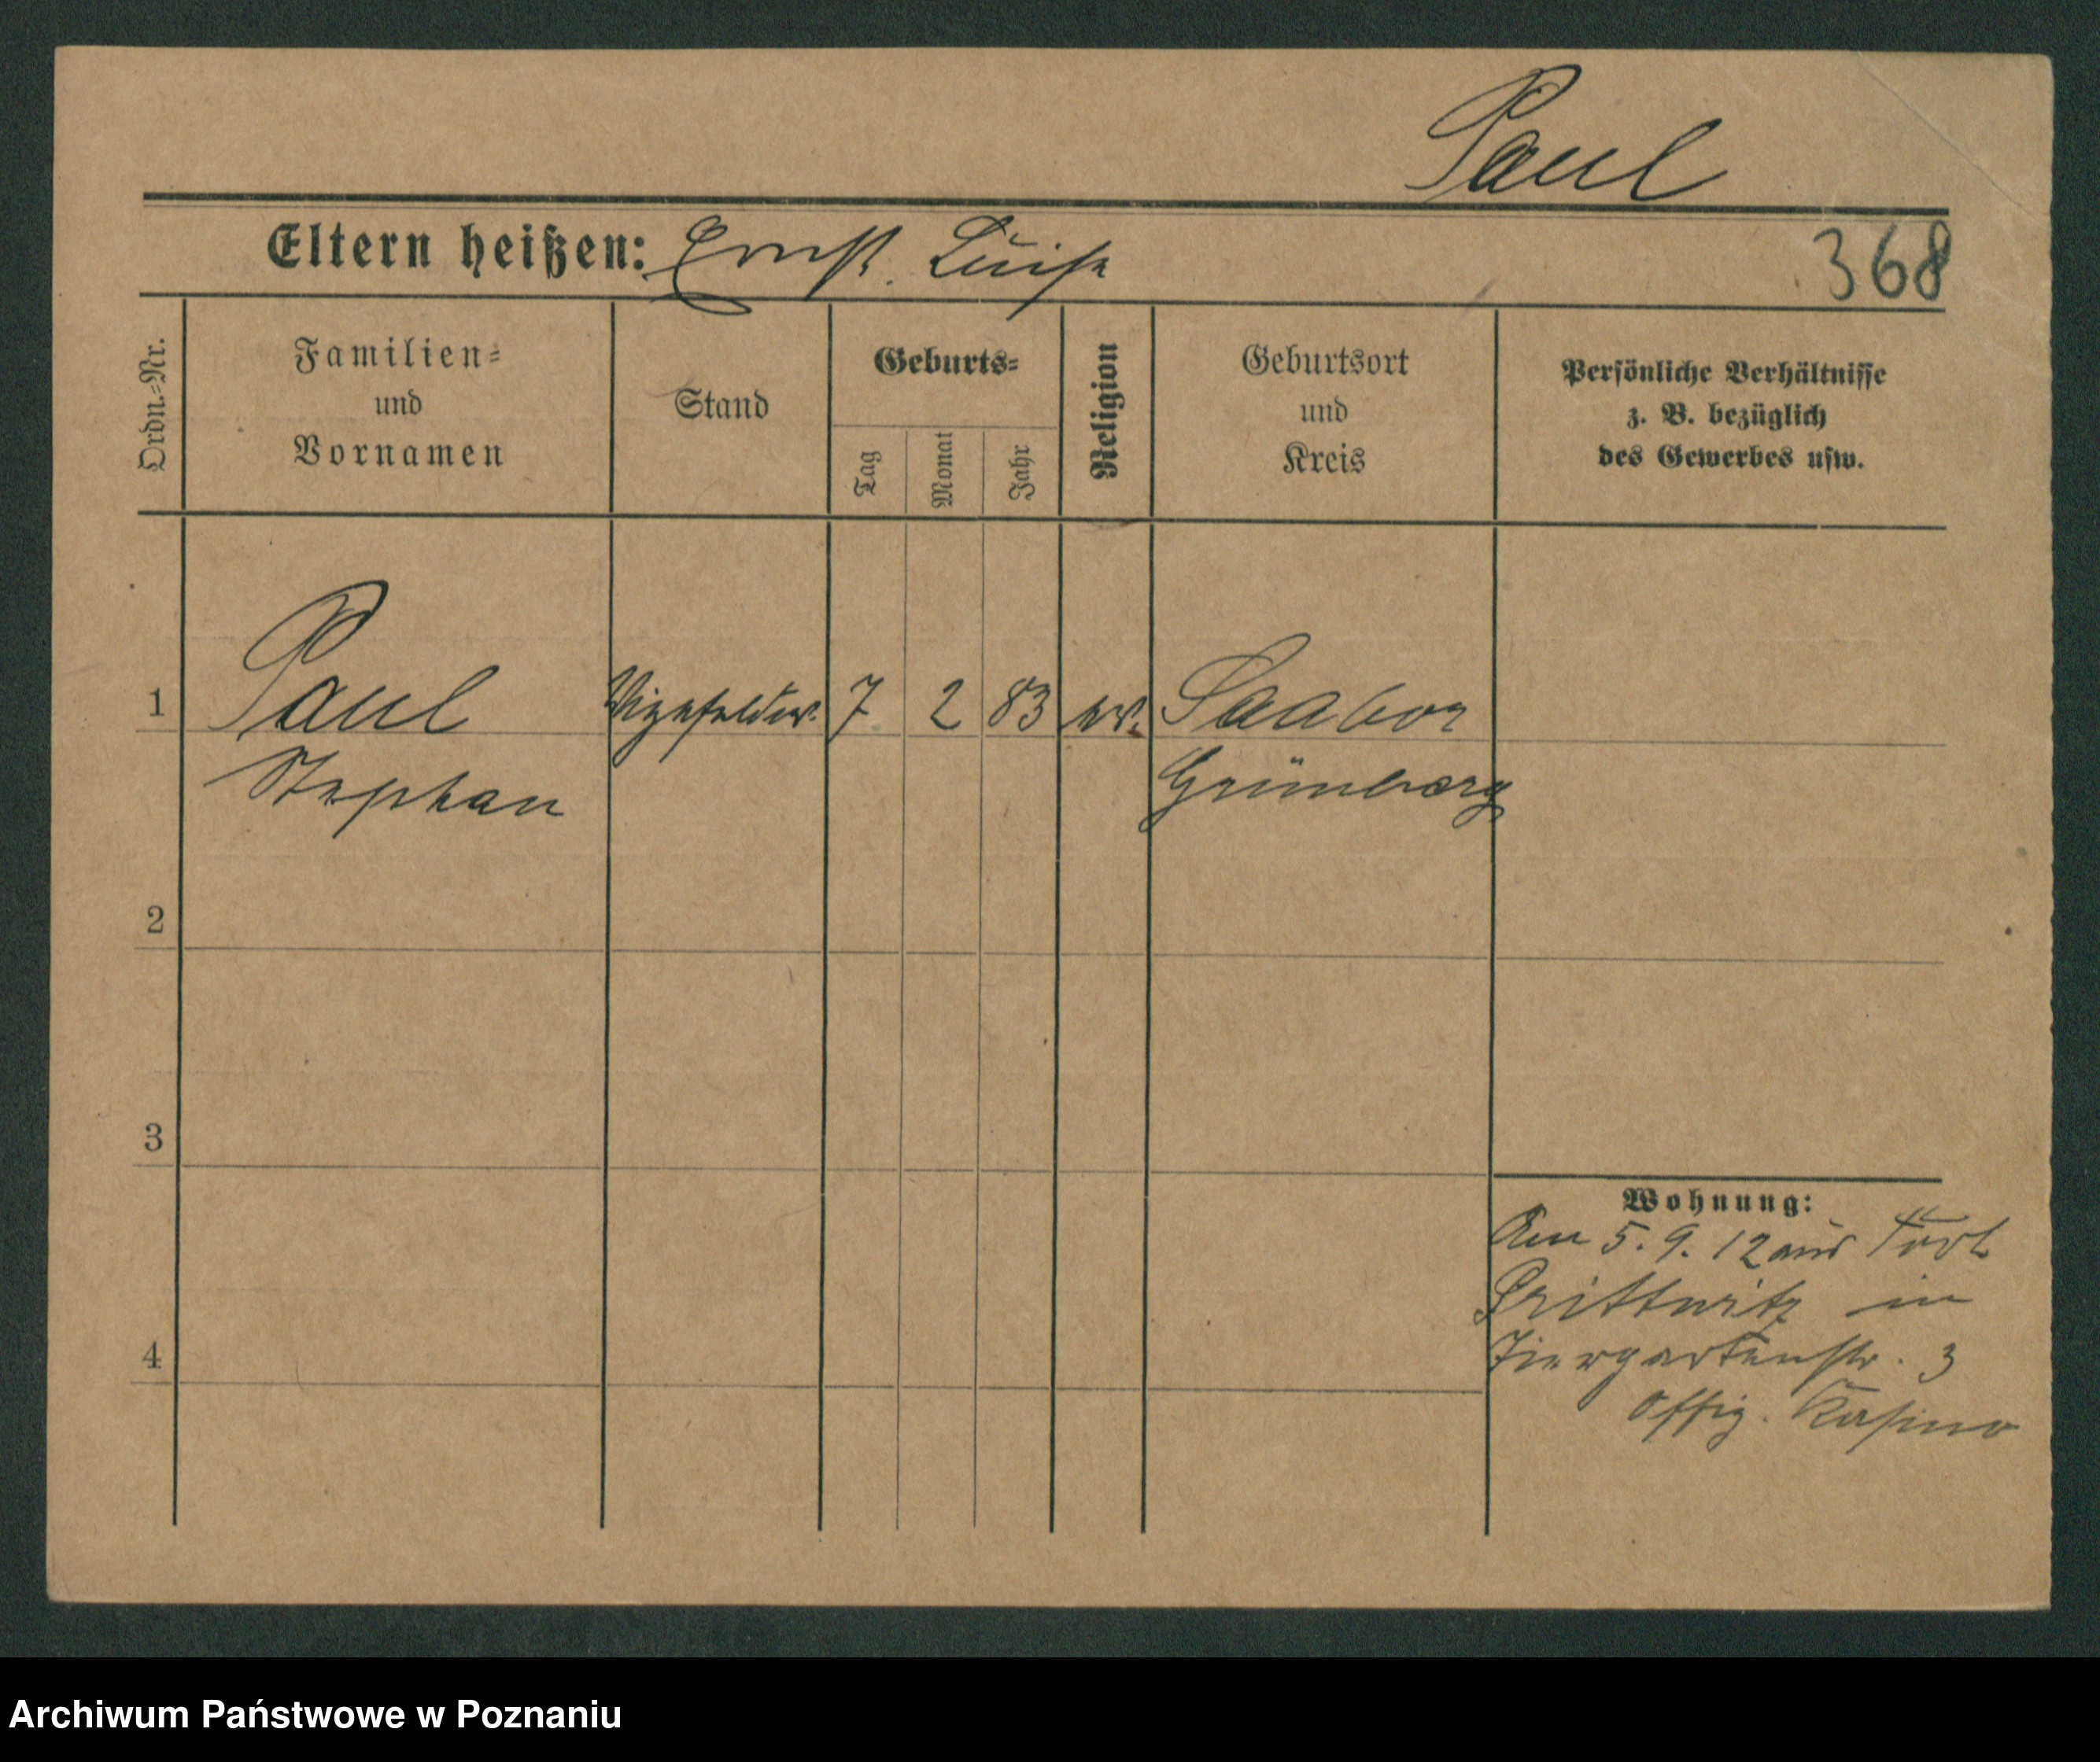 Paul
Eltern heißen: Ernst. Luise
368
Ordn.-Nr.
Familien-
und
Vornamen
Stand
Geburts-
Tag
Monat
Jahr
Religion
Geburtsort
und
Kreis
Persönliche Verhältnisse
z. B. bezüglich
des Gewerbes usw.
1 Paul Vizefeldw. 7 2 83 ev. Saabor
Stephan Grünberg
2
3
4
Wohnung:
Am 5.9.12 aus Fort
Prittwitz in
Tiergartenstr. 3
Offiz. Kasino
Archiwum Państwowe w Poznaniu